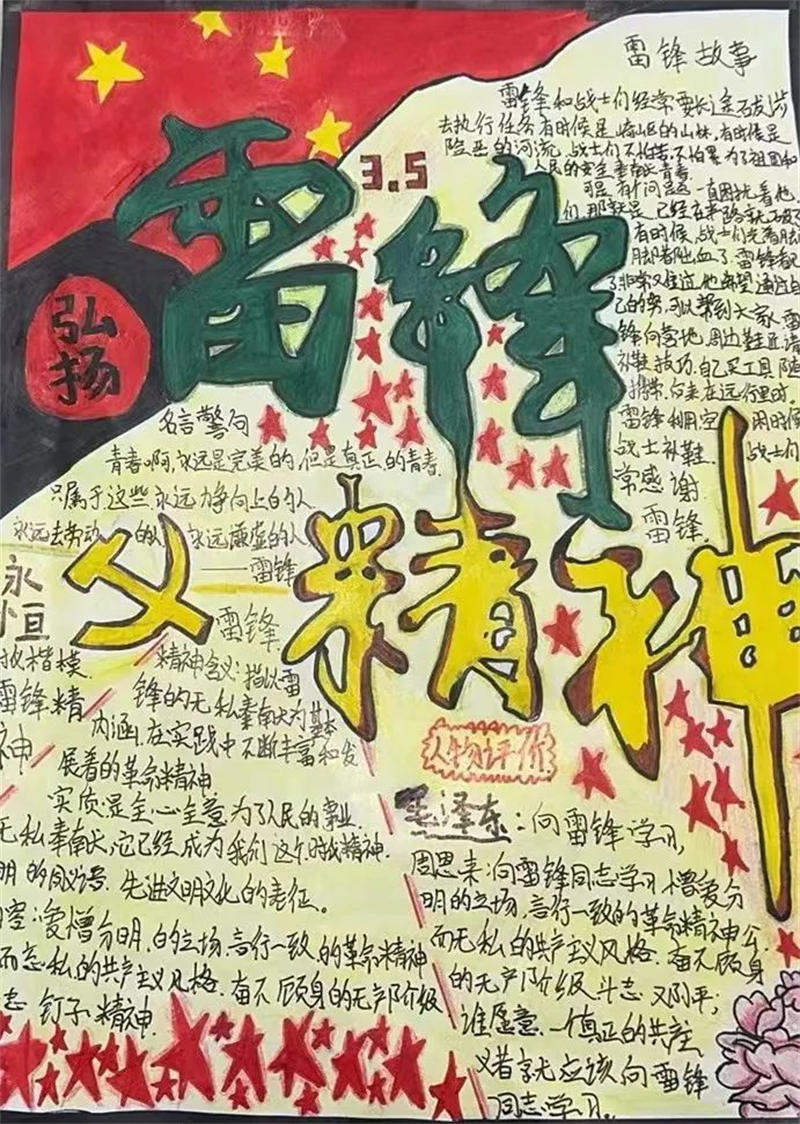 雷锋故事
雷锋和战士们经常要长途跋涉
去执行任务有时候是崎岖的山林,有时候是
险恶的河流.战士们不怕苦,不怕累为了祖国和
人民的安全奉献青春.
可是有个问题一直困扰着他
们,那就是
有时候,战士们光着脚
脚都出血了.雷锋看
己的努,可以帮到大家.雷
锋向营地周边鞋匠请
补鞋技巧.自己买工具随
携带.后来在远行里时.
雷锋利用空闲时候
战士补鞋.战士们
常感谢
雷锋.
3.5
雷锋
弘扬
精神
名言警句
青春啊,永远是完美的,但是真正的青春.
只属于这些永远力争向上的人.
永远去劳动的人,永远谦虚的人.
——雷锋
永恒
楷模
雷锋精
神
雷锋
精神含义:指以雷
锋的无私奉献为基本
内涵.在实践中不断丰富和发
展着的革命精神
实质是全心全意为了人民的事业.
无私奉献.它已经成为我们这个时代精神.
明的同义号.先进文明文化的表征。
爱憎分明.的立场,言行一致.的革命精神
而忘私的共产主义风格.奋不顾身的无产阶级
志 钉子精神.
人物评价
毛泽东:向雷锋学习,
周恩来:向雷锋同志学习憎爱分
明的立场,言行一致的革命精神公
而无私的共产主义风格.奋不顾身
的无产阶级斗志 邓小平;
谁愿意.一个真正的共产
义者就应该向雷锋
同志学习.